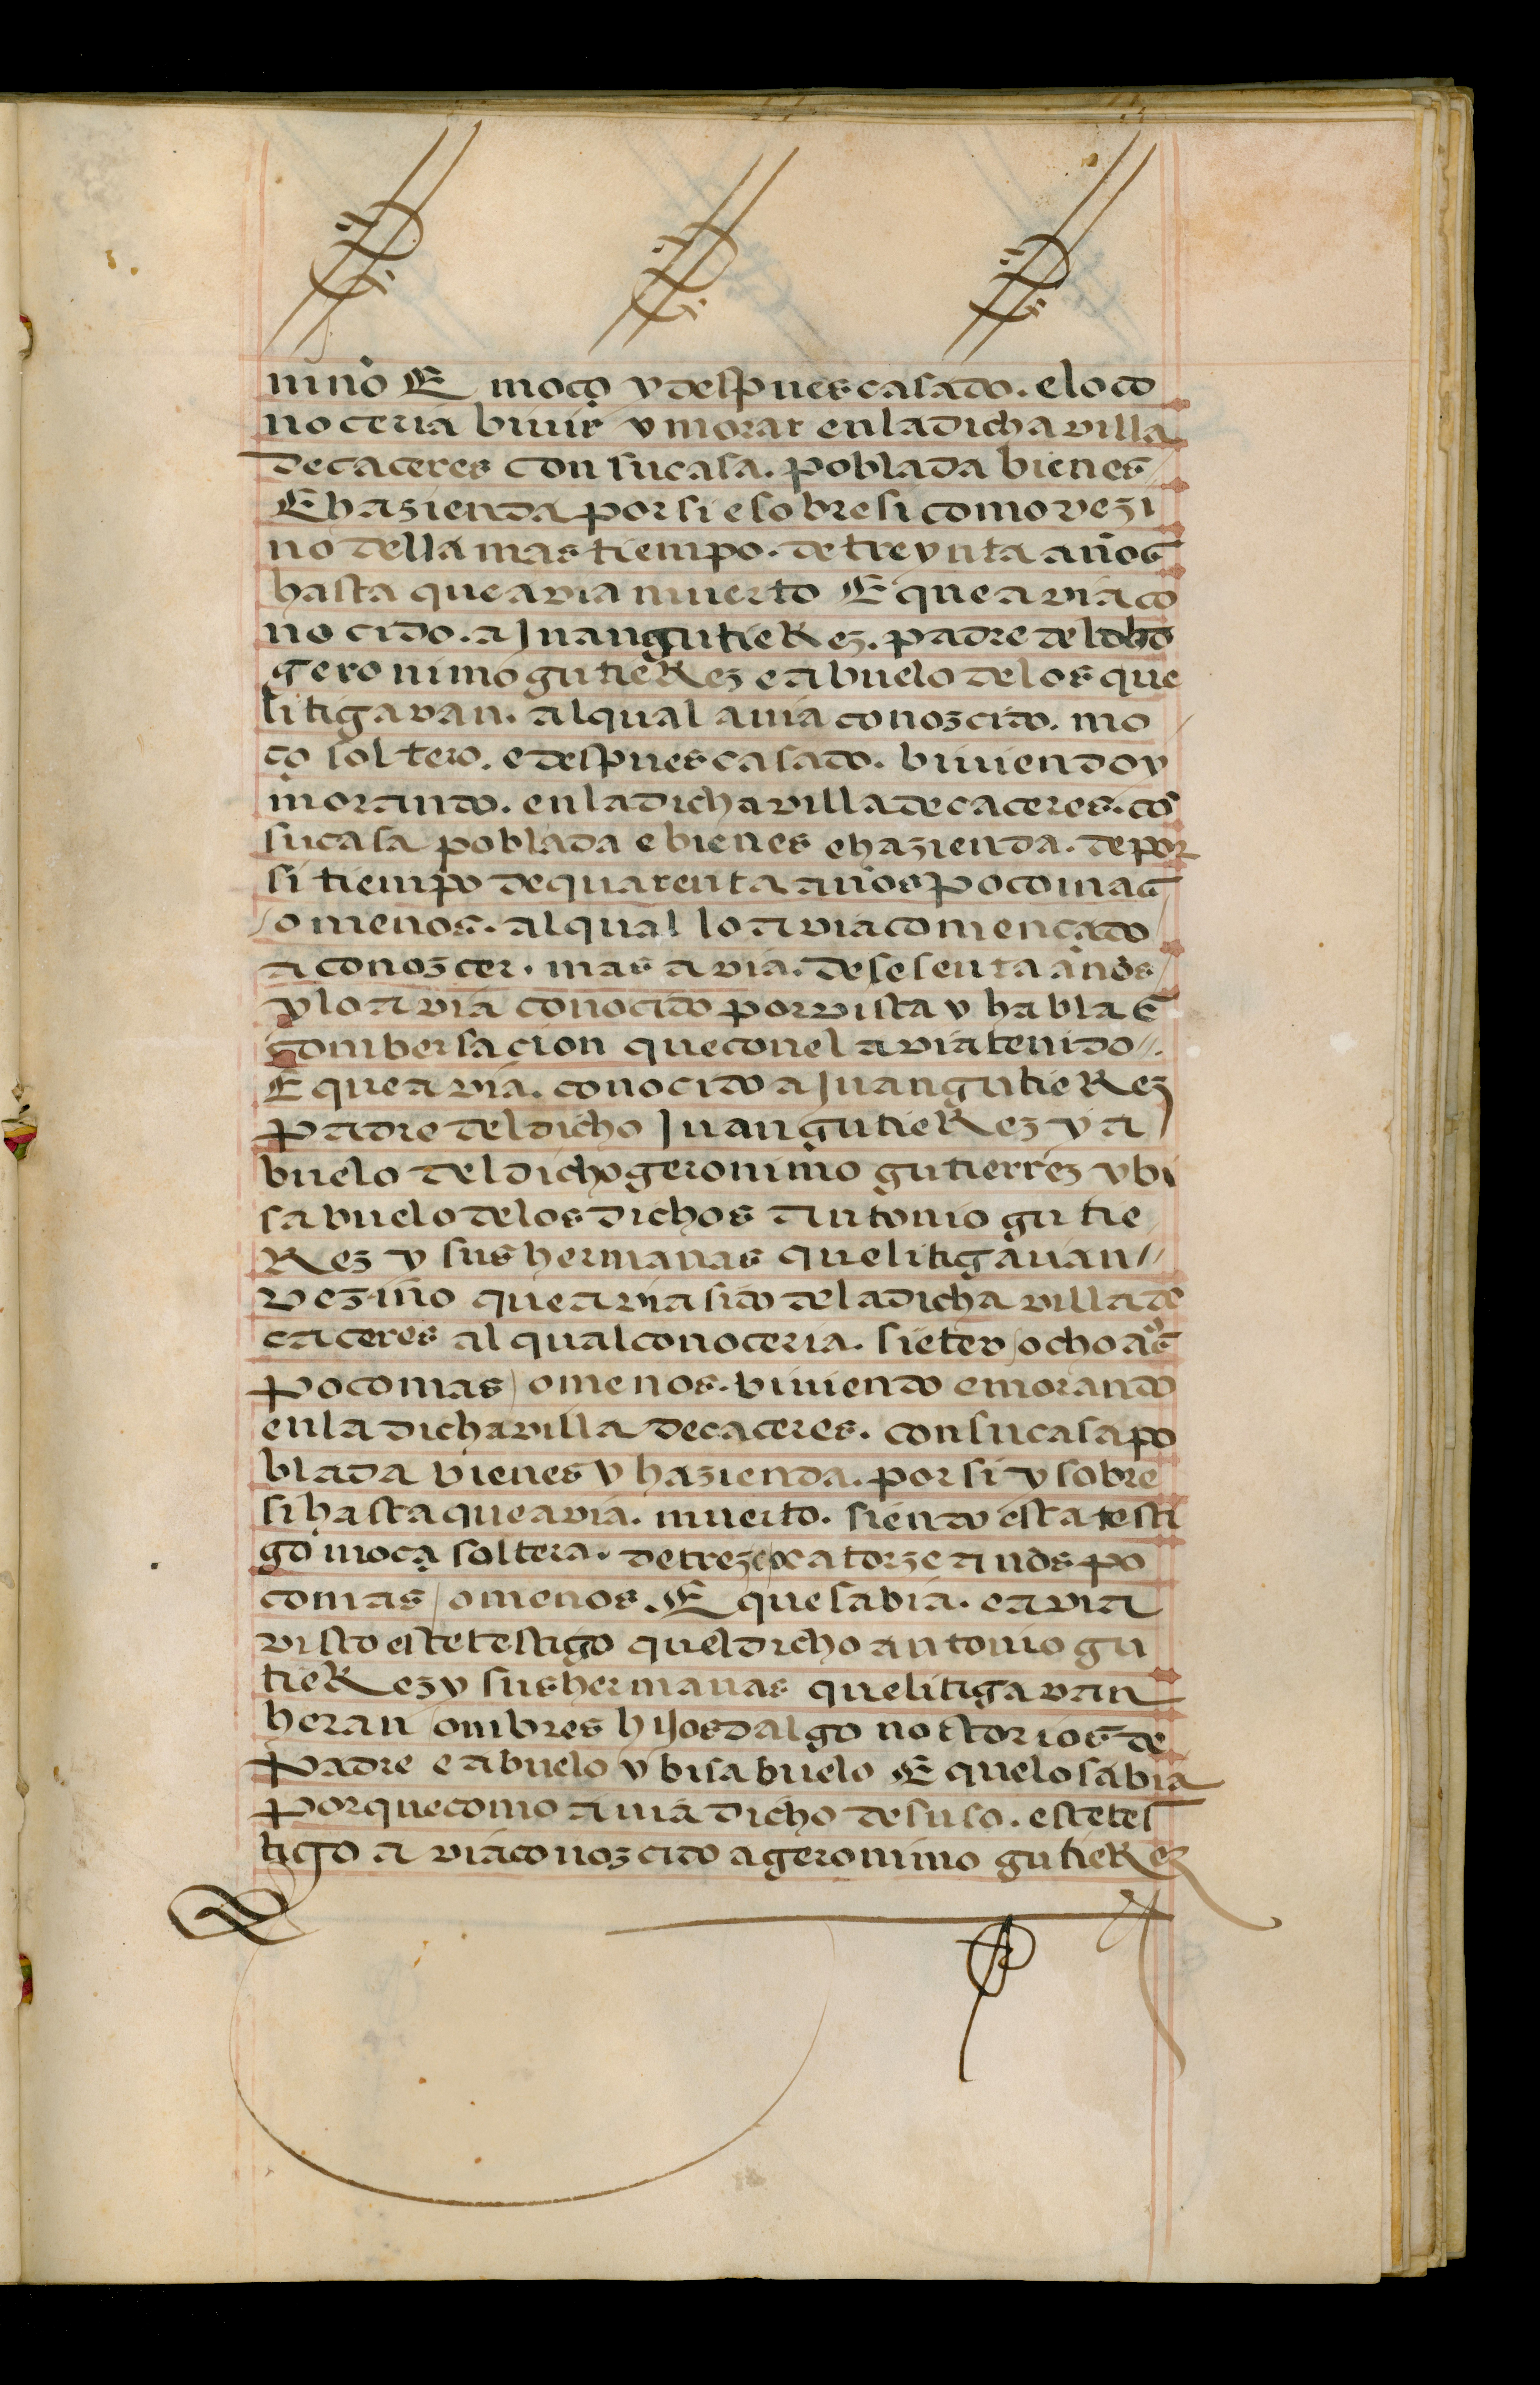 niño E moço y despues casado. e lo co
noceria biuir y morar en la dicha villa
de caceres con su casa. poblada bienes
E hazienda por si e sobre si como vezi
no della mas tiempo. de treynta años
hasta que avia muerto E que avia co
nocido. a Juan gutieRez. padre del dho
geronimo gutieRez e abuelo de los que
litigavan. al qual auia conozcido. mo
ço soltero. e despues casado. biuiendo y
morando. en la dicha villa de caceres. cō
su casa poblada e bienes e hazienda. de por
si tiempo de quarenta años poco mas
o menos. al qual lo avia començado
a conozcer. mas avia. de sesenta años
y lo avia conocido por vista y habla E
combersacion que con el avia tenido.
E que avia. conocido a Juan gutieRez
padre del dicho Juan gutieRez y a
buelo del dicho geronimo gutierrez y bi
sabuelo de los dichos antonio gutie
Rez y sus hermanas que litigauan
vezino que avia sido de la dicha villa de
caceres al qual conoceria. siete v ocho aºs
poco mas o menos. biuiendo e morando
en la dicha villa de caceres. con su casa po
blada bienes y hazienda. por si y sobre
si hasta que avia. muerto. siendo esta testi
go moça soltera. de treze o catorze años po
co mas o menos. E que sabia. e avia
visto este testigo quel dicho antonio gu
tieRez y sus hermanas que litigavan
heran ombres hijosdalgo notorios de
padre e abuelo y bisabuelo E que lo sabia
porque como auia dicho de suso. este tes
tigo avia conozcido a geronimo gutieRez